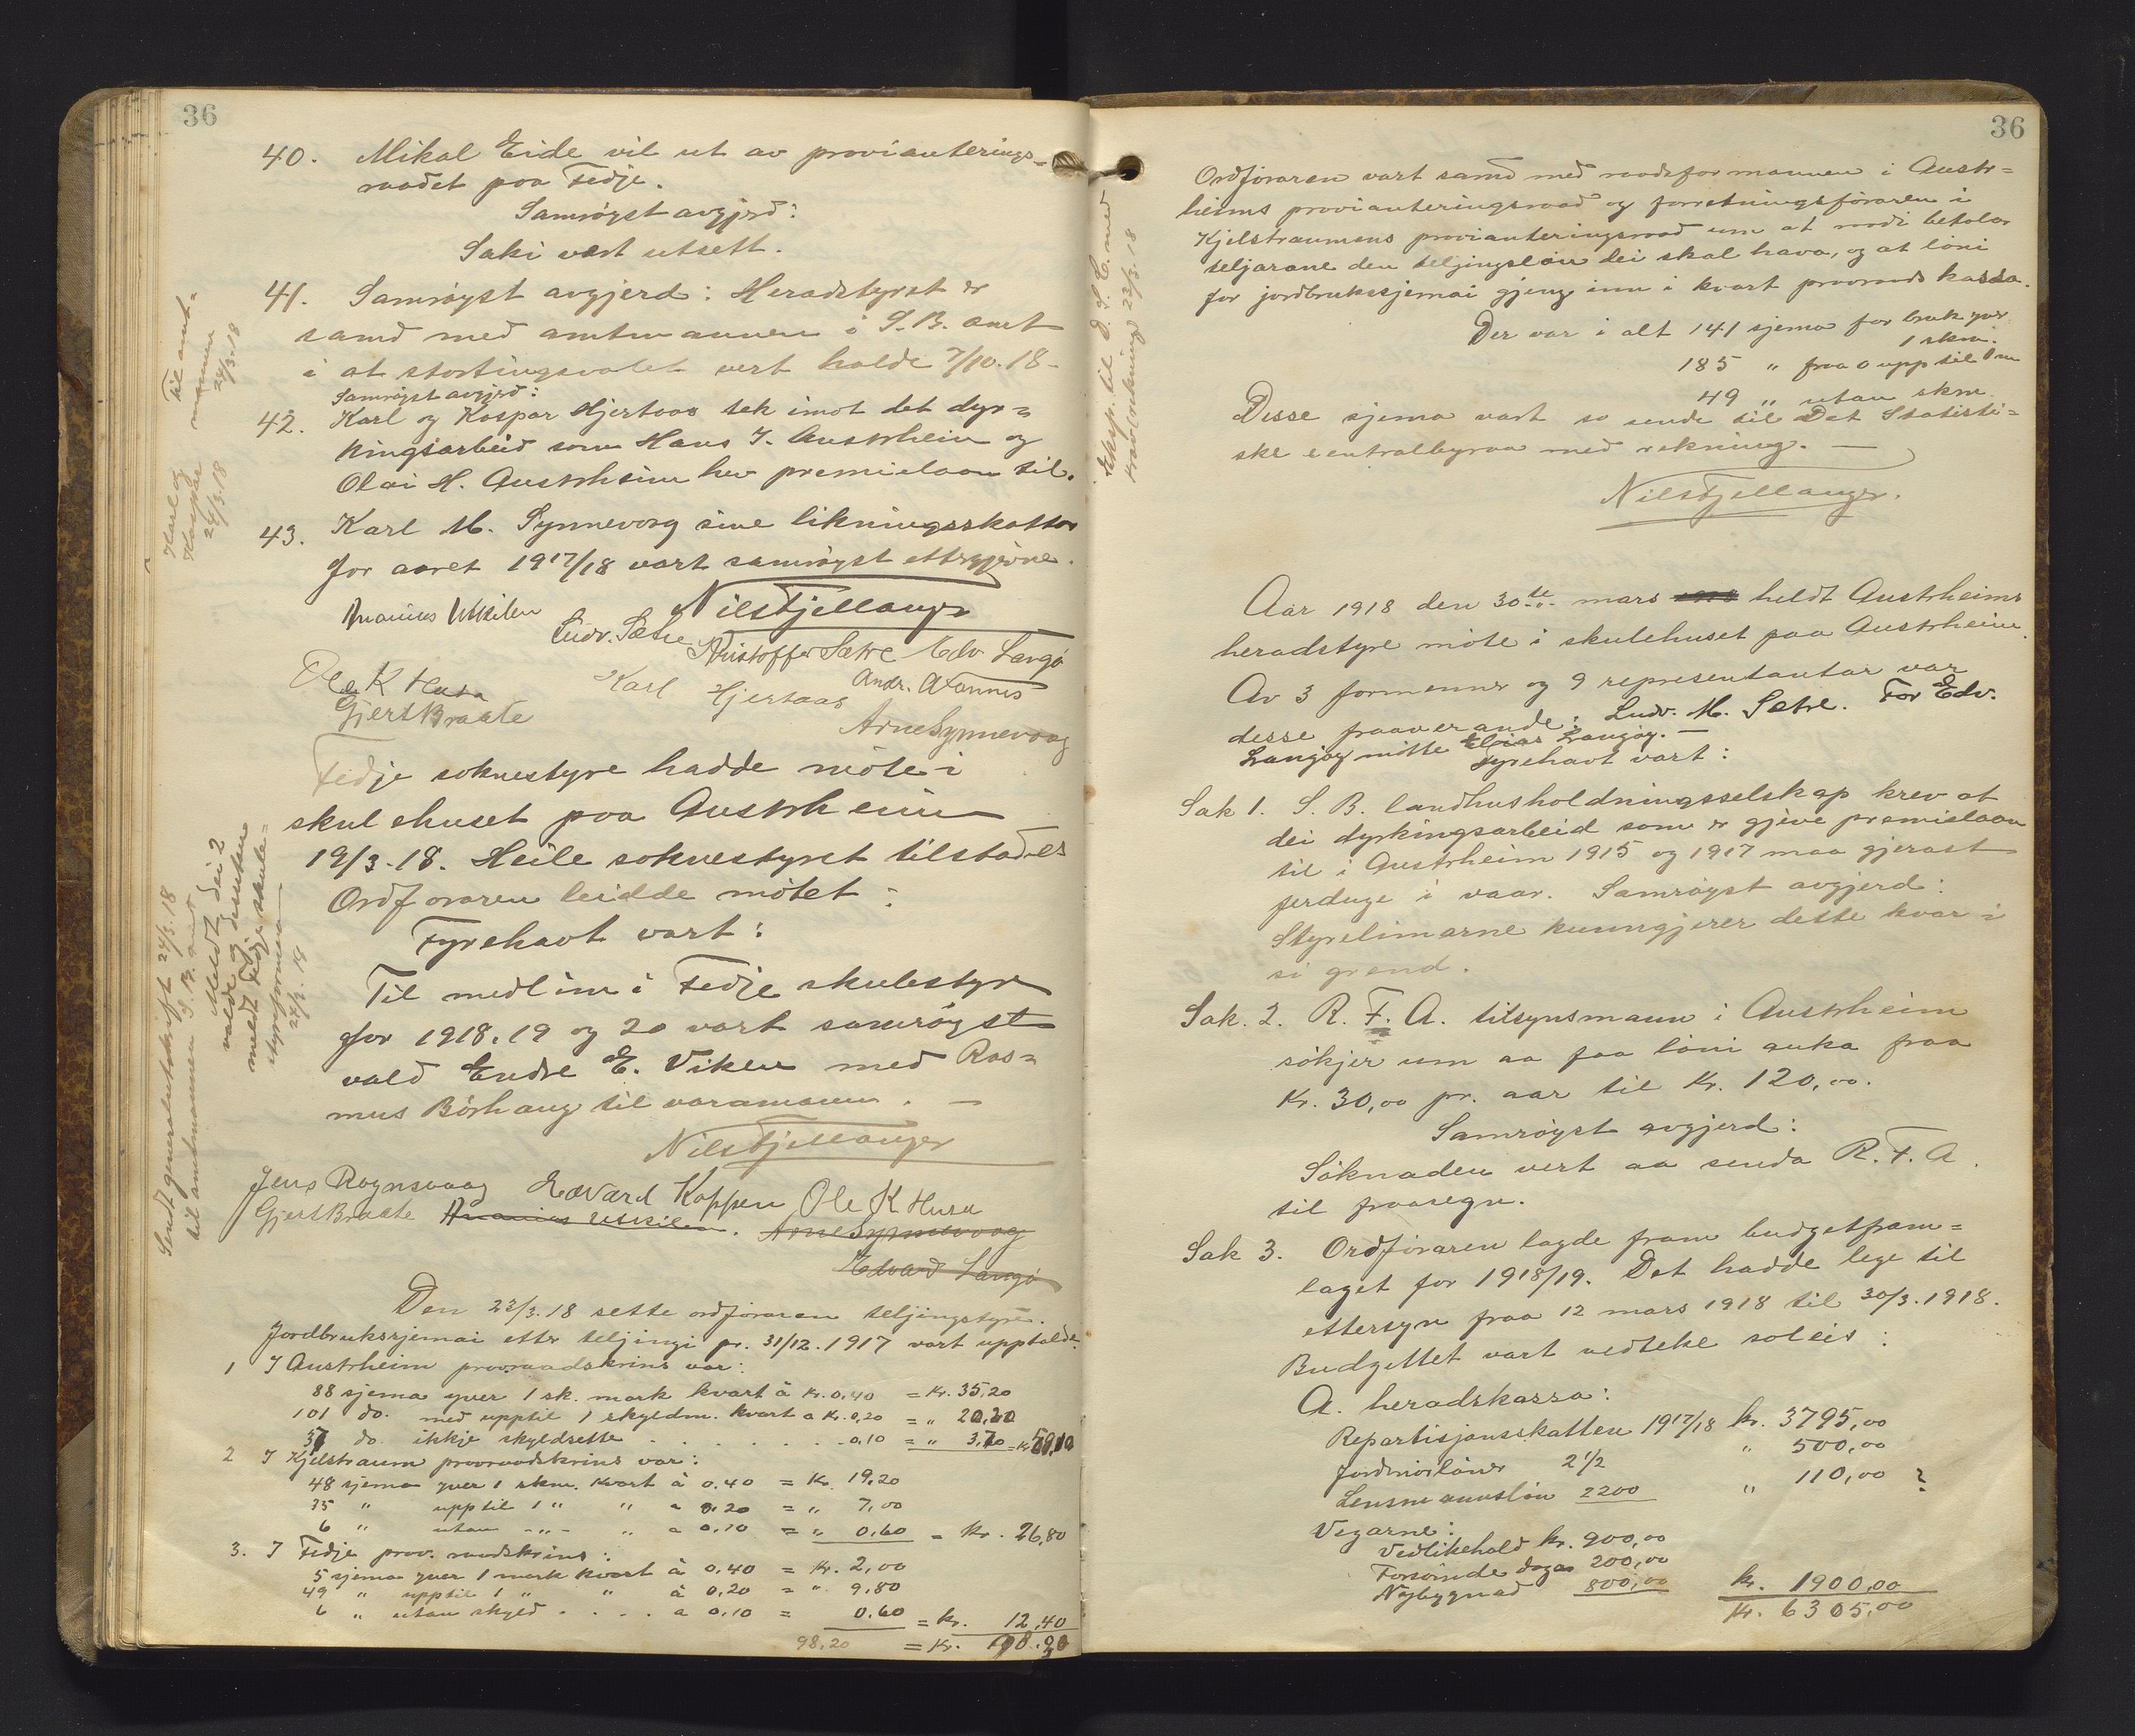 36
40. Mikal Eide vil ut av provianterings-
raadet paa Fedje.
Samrøyst avgjerd:
Saki vart utsett.
41. Samrøyst avgjerd: Heradstyret er
samd med amtmannen i S.B. amt
i at stortingsvalet vert halde 7/10.18-
Til amt-
mannen
24/3.18
Samrøyst avgjerd:
42. Karl og Kaspar Hjertaas tek imot det dyr-
kingsarbeid som Hans J. Austrheim og
Olai H. Austrheim hev premielaan til.
Karl og
Kaspar
24/3.18
43. Karl M. Synnevaag sine likningsskattar
for aaret 1917/18 vart samrøyst ettergjevne.
Nils Fjellanger
Ananias Utkilen
Ludv. Sætre
Kristoffer Sætre Edv Langø
Ole K Husa
Karl Hjertaas
Andr. Wannes
Gjert Braate
Arne Synnevaag
Fedje soknestyre hadde møte i
skulehuset paa Austrheim
19/3-18. Heile soknestyret tilstades
Ordføraren leidde møtet:
Fyrehavt vart:
Til medlim i Fedje skulestyre
for 1918.19 og 20 vart samrøyst
vald Endre E. Viken med Ras-
mus Børhaug til varamann. -
Sendt generalutskrift 24/3.18
til amtmannen i S.B. amt
Meldt dei 2
valde og dessutan
meldt Fedje skule-
styreformann
24/3.18
Nils Fjellanger
Jens Rognsvaag Edvard Koppen Ole K Husa
Gjert Braate Ananias Utkilen. Arne Synnevaag
Edvard Langø
Den 23/3.18 sette ordføraren teljingstyre.
Jordbruksskjemai etter teljingi pr. 31/12.1917 vart upptalde.
1 I Austrheim provraadskrins var:
88 sjema yver 1 sk. mark kvart à kr. 0,40 = Kr. 35,20
101 do. med upptil 1 skyldm. kvart a kr. 0,20 = " 20,20
37 do ikkje skyldsette . . . . . . . . 0,10 = " 3,70 = kr 59,10
2 I Kjelstraum provraadskrins var:
48 sjema yver 1 skm. kvart à 0.40 = Kr. 19,20
35 " upptil 1 " " a 0.20 = " 7,00
6 " utan - " - " a 0.10 = " 0,60 = Kr. 26,80
3. I Fedje prov. raadskrins:
5 sjema yver 1 mark kvart à 0,40 = Kr. 2,00
49 " upptil 1 " " à 0,20 = " 9,80
6 " utan skyld . . . . a 0,10 = 0.60 = kr. 12,40
98,20 = Kr. 98.30
36
Ordføraren vart samd med raadsformannen i Austr-
heims provianteringsraad og forretningsføraren i
Kjelstraumens provianteringsraad um at raadi betalar
teljarane den teljingsløn dei skal hava, og at løni
for jordbruksskjemai gjeng inn i kvart provraads kassa.
Der var i alt 141 sjema for bruk yver
1 skm.
185 " fraa 0 upp til 1 m
49 " utan skm.
Disse sjema vart so sende til Det Statisti-
ske centralbyraa med rekning. -
Nils Fjellanger.
Eksp. til D. S. C. med
kravd rekning 23/3.18
Aar 1918 den 30te mars 1918 heldt Austrheims
heradstyre møte i skulehuset paa Austrheim.
Av 3 formenner og 9 representantar var
desse fraaverande: Ludv. M. Sætre. For Edv.
Langøy møtte Elias Langøy. -
Fyrehavt vart:
Sak 1. S. B. landhusholdningsselskap krev at
dei dyrkingsarbeid som er gjeve premielaan
til i Austrheim 1915 og 1917 maa gjerast
ferduge i vaar. Samrøyst avgjerd:
Styrelimarne kunngjerer dette kvar i
si grend.
Sak. 2. R. F. A. tilsynsmann i Austrheim
søkjer um aa faa løni auka fraa
Kr. 30,00 pr. aar til Kr. 120,00.
Samrøyst avgjerd:
Søknaden vert aa senda R. F. A.
til fraasegn.
Sak 3. Ordføraren lagde fram budgetfram-
laget for 1918/19. Det hadde lege til
ettersyn fraa 12 mars 1918 til 30/3.1918.
Budgettet vart vedteke soleis:
A. heradskassa:
Repartisjonsskatten 1917/18 kr. 3795,00
Jordmorløner 2 1/2 " 500,00
Lensmannsløn 2200 " 110,00 ?
Vegarne:
Vedlikehald kr. 900,00
Forsømde dagar 200,00
Nybygnad 800,00 kr. 1900,00
Kr. 6305,00